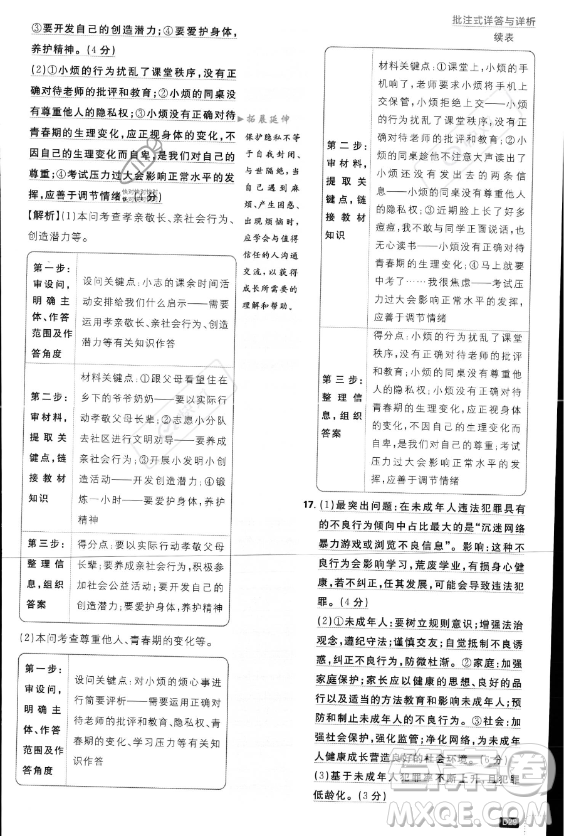 批注式详答与详析
③要开发自己的创造潜力；④要爱护身体，
养护精神。（4分）
（2）①小烦的行为扰乱了课堂秩序，没有正
确对待老师的批评和教育；②小烦的同桌没
有尊重他人的隐私权；③小烦没有正确对待
青春期的生理变化，应正视身体的变化，不
因自己的生理变化而自卑，是我们对自己的
尊重；④考试压力过大会影响正常水平的发
挥，应善于调节情绪。（4分）
【解析】（1）本问考查孝亲敬长、亲社会行为、
创造潜力等。
第一步：
审设问，
明确主
体、作答
范围及作
答角度
设问关键点：小志的课余时间活
动安排给我们什么启示——需要
运用孝亲敬长、亲社会行为、创造
潜力等有关知识作答
第二步：
审材料，
提取关
键点，链
接教材
知识
材料关键点：①跟父母看望住在
乡下的爷爷奶奶——要以实际行
动孝敬父母长辈；②志愿小分队
去社区进行文明劝导——要养成
亲社会行为；③开展小发明小创
造活动——开发创造潜力；④锻
炼一小时——要爱护身体，养护
精神
第三步：
整理信
息，组织
答案
得分点：要以实际行动孝敬父母
长辈；要养成亲社会行为，积极参
加社会公益活动；要开发自己的
创造潜力；要爱护身体，养护精神
（2）本问考查尊重他人、青春期的变化等。
第一步：
审设问，
明确主
体、作答
范围及作
答角度
设问关键点：对小烦的烦心事进
行简要评析——需要运用正确对
待老师的批评和教育、隐私权、青
春期的变化、学习压力等有关知
识作答
拓展延伸
保护隐私不等
于自我封闭、
与世隔绝，当
自己遇到麻
烦、产生困惑、
出现烦恼时，
应学会与值得
信任的人沟通
交流，以获得
成长所需要的
理解和帮助。
续表
第二步：
审材料，
提取关
键点，链
接教材
知识
材料关键点：①课堂上，小烦的手
机响了，老师要求小烦将手机上
交保管，小烦拒绝上交——小烦
的行为扰乱了课堂秩序，没有正
确对待老师的批评和教育；②小
烦的同桌未经同意大声读出了
还未发送出去的两条信息
——小烦的同桌没有尊重他人
的隐私权；③近期脸上长了好多
痘痘，我不只一次对着镜子发呆，也
无心读书——小烦没有正确对待
青春期的生理变化；④考试压
力过大会影响正常水平的发挥，
应善于调节情绪
第三步：
整理信
息，组织
答案
得分点：小烦的行为扰乱了课堂
秩序，没有正确对待老师的批评
和教育；小烦的同桌没有尊重他
人的隐私权；小烦没有正确对待
青春期的生理变化，应正视身体
的变化，不因自己的生理变化而
自卑，是我们对自己的尊重；考试
压力过大会影响正常水平的发
挥，应善于调节情绪
17.（1）最突出问题：在未成年人违法犯罪具有
的不良行为倾向中占比最大的是“沉迷网络
暴力游戏或浏览不良信息”。影响：这些不
良行为会影响学习，荒废学业，有害身心健
康，不利于未成年人的成长，可能会导致违法犯
罪。（4分）
（2）①未成年人：要树立规则意识；增强法治
观念，遵纪守法；谨慎交友；自觉养成良好习惯，
纠正不良行为，防微杜渐。②家庭：加强
家庭保护，家长应以健康的思想、良好的品行
和适当的方法教育和影响未成年人，预
防和制止未成年人的不良行为。③社会：加
强社会保护，强化监管；净化网络，为未成年
人健康成长营造良好的社会环境。（6分）
（3）基于未成年人犯罪率不断上升，且犯罪
低龄化。（3分）
答案圈
MXQE.COM
D29